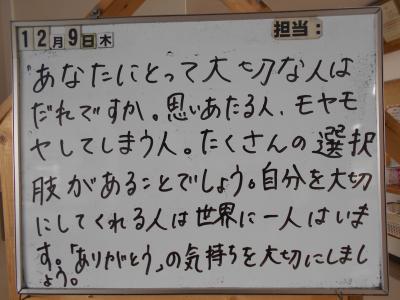 12月9日木 担当:
あなたにとって大切な人は
だれですか。思いあたる人、モヤモ
ヤしてしまう人。たくさんの選択
肢があることでしょう。自分を大切
にしてくれる人は世界に一人はいま
す。「ありがとう」の気持ちを大切にしまし
ょう。